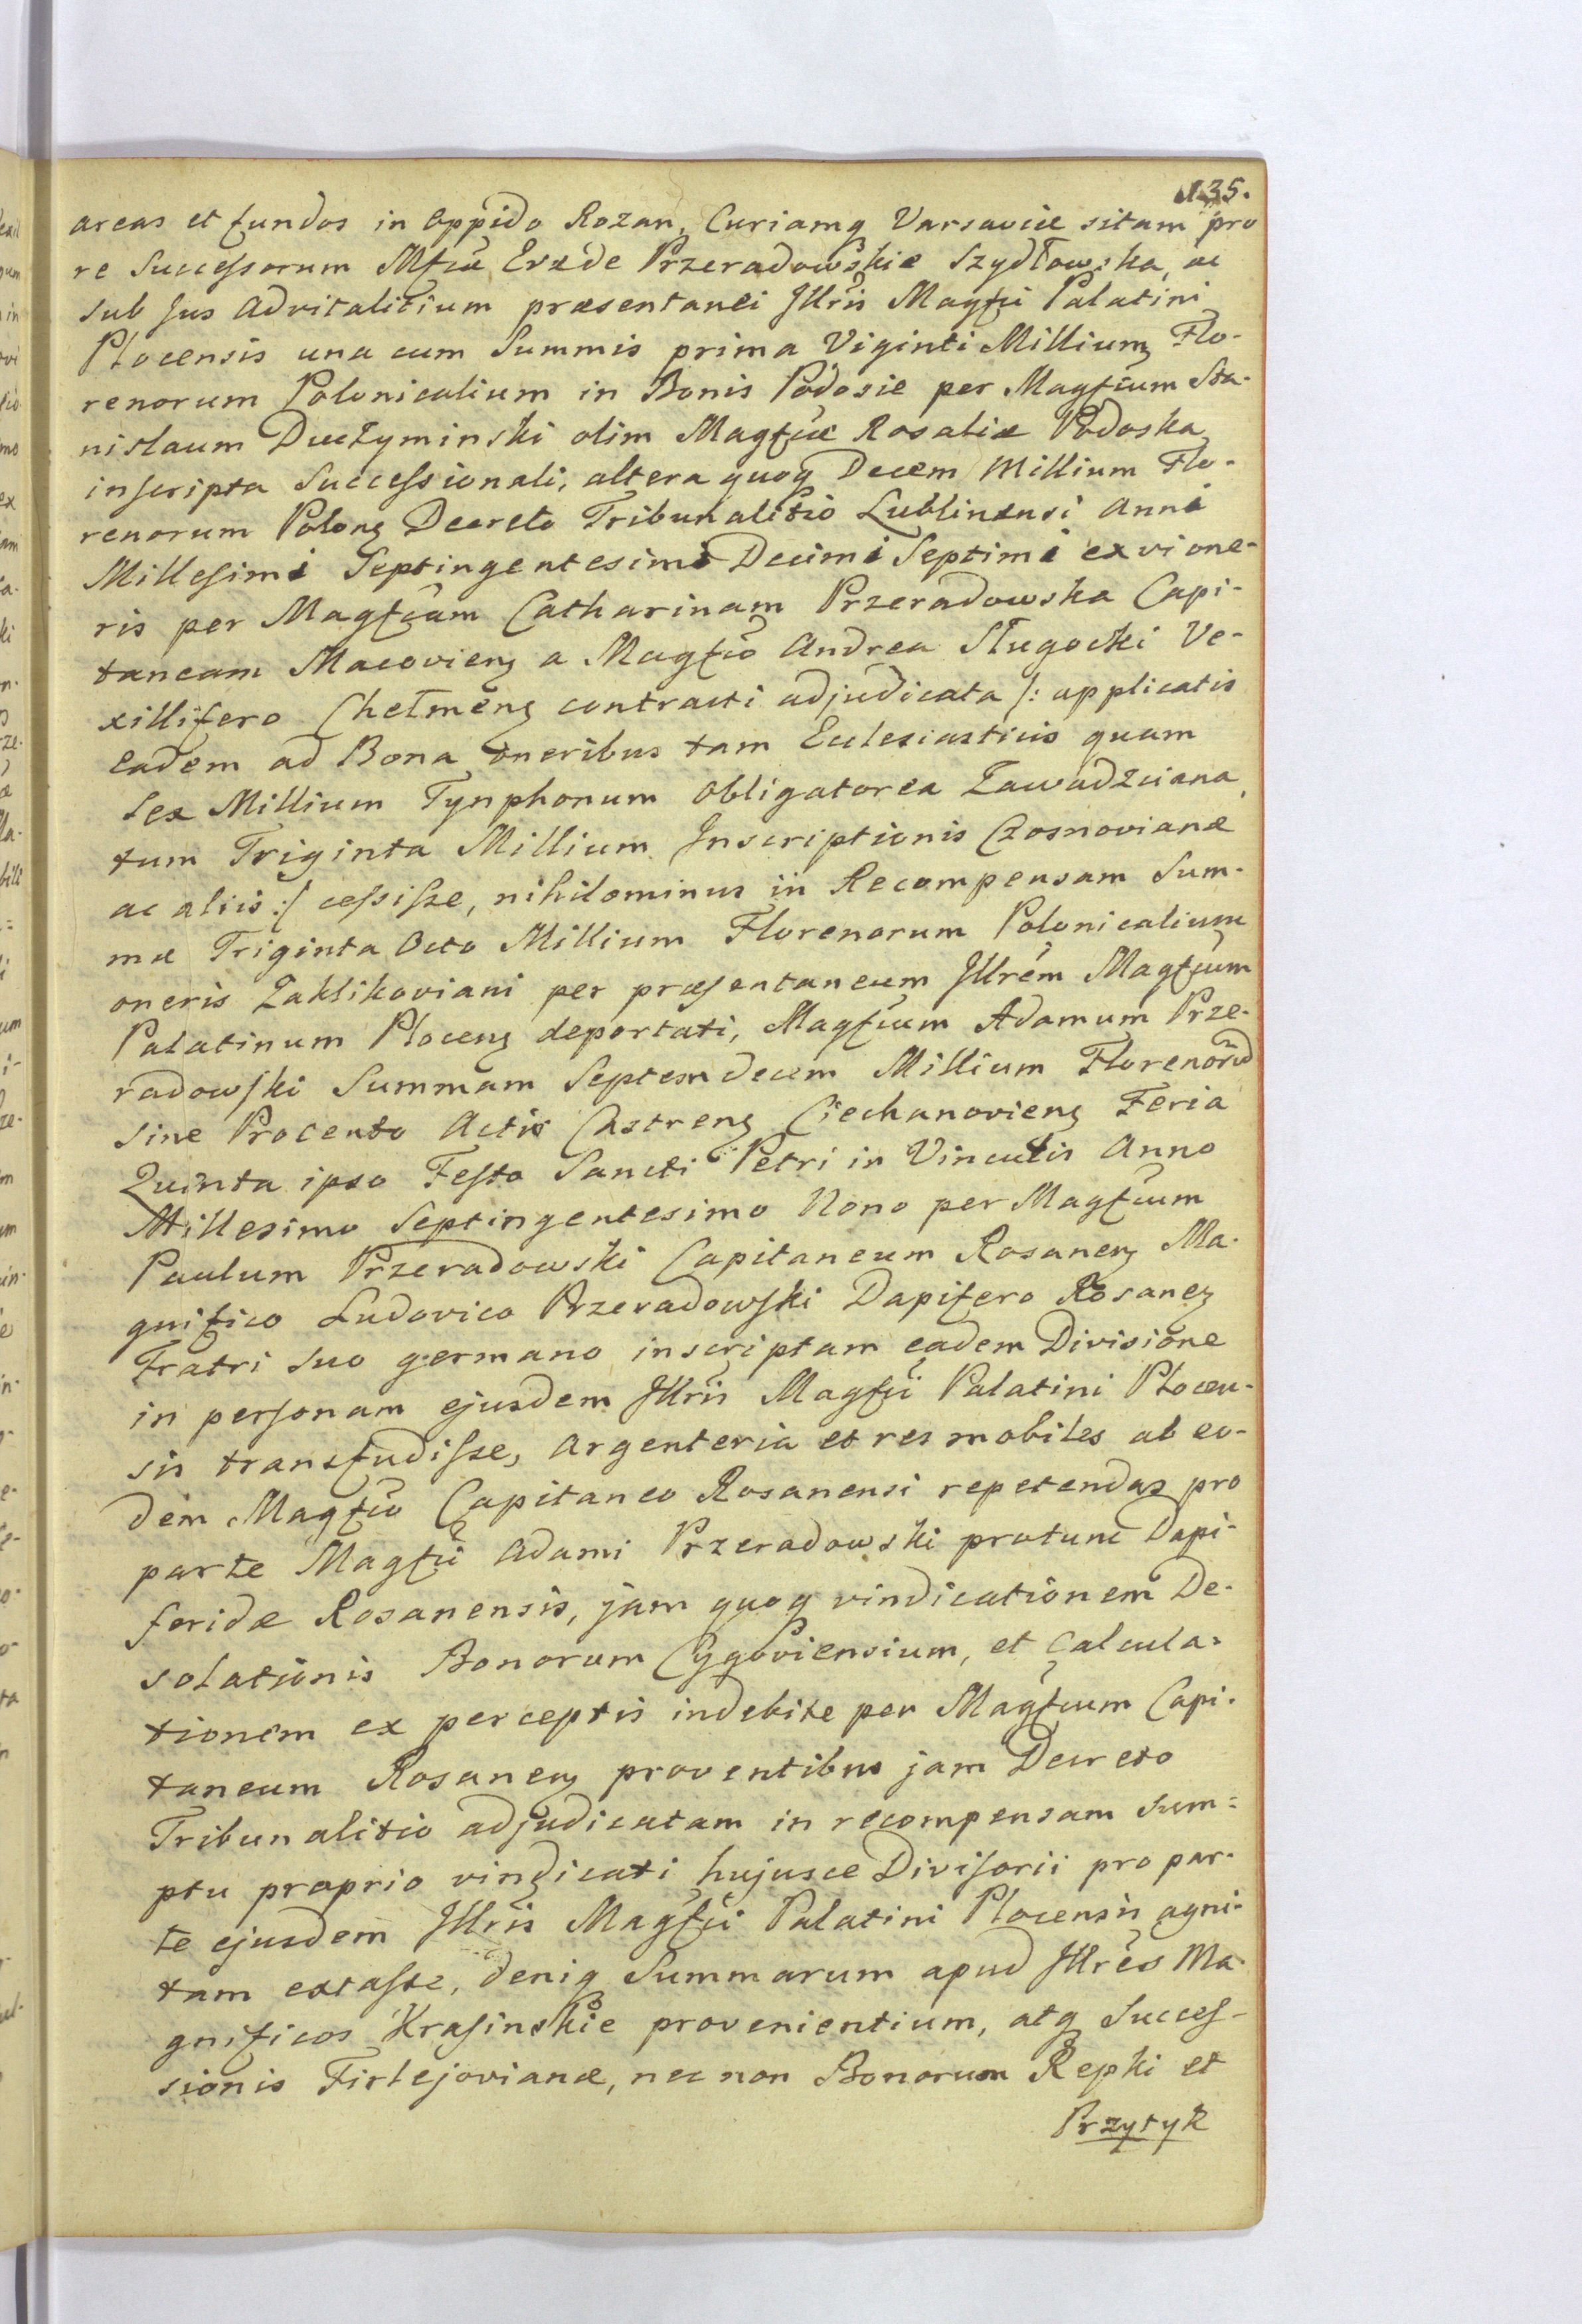 135.
areas et fundos in Oppido Rozan, Curiamq Varsaviæ sitam pro
re Successorum Mfcæ Evæ de Przeradowskie Szydłowska, ac
sub Jus Advitalitium præsentanei Jllris Magfci Palatini
Plocensis una cum Summis prima Viginti Millium Flo-
renorum Polonicalium in Bonis Podosie per Magfcum Sta-
nislaum Duczyminski olim Magfcæ Rosaliæ Podoska
inscripta Successionali, altera quoq Decem Millium Flo-
renorum Polong Decreto Tribunalitio Lublinensi Anni
Millesimi Septingentesimi Decimi Septimi ex vi one-
ris per Magfcam Catharinam Przeradowska Capi-
taneam Macovieng a Magfco Andrea Sługocki Ve-
xillifero Chełmeng contracti adjudicata /: applicatis
eadem ad Bona oneribus tam Eclesiasticis quam
Sex Millium Tynphonum Obligatorea Zawadzciana,
tum Triginta Millium Jnscriptionis Czosnovianæ
ac aliis :/ cessisse, nihilominus in Recompensam Sum-
mæ Triginta Octo Millium Florenorum Polonicalium
oneris Zaklikoviani per præsentaneum Jllrem Magfcum
Palatinum Ploceng deportati, Magfcum Adamum Prze-
radowski Summam Septemdecem Millium Florenorũ
sine Procento Actis Castreng Ciechanovieng Feria
Quinta ipso Festo Sancti Petri in Vinculis Anno
Millesimo Septingentesimo Nono per Magfcum
Paulum Przeradowski Capitaneum Rosaneng Ma-
gnifico Ludovico Przeradowski Dapifero Rosaneg
Fratri suo germano inscriptam eadem Divisione
in personam ejusdem Jllris Magfci Palatini Plocen-
sis transfudisse, Argenteria et res mobiles ab eo-
dem Magfco Capitaneo Rosanensi repetendas pro
parte Magfci Adami Przeradowski protunc Dapi-
feridæ Rosanensis, jam quoq vindicationem De-
solationis Bonorum Cygoviensium, et Calcula=
tionem ex perceptis indebite per Magfcum Capi-
taneum Rosaneng proventibus jam Decreto
Tribunalitio adjudicatam in recompensam sum=
ptu proprio vindicati hujusce Divisorii pro par-
te ejusdem Jllris Magfci Palatini Plocensis agni-
tam extasse, deniq Summarum apud Jllres Ma-
gnificos Krasinskie provenientium, atq Succes-
sionis Firlejovianæ, nec non Bonorum Repki et
Przytyk